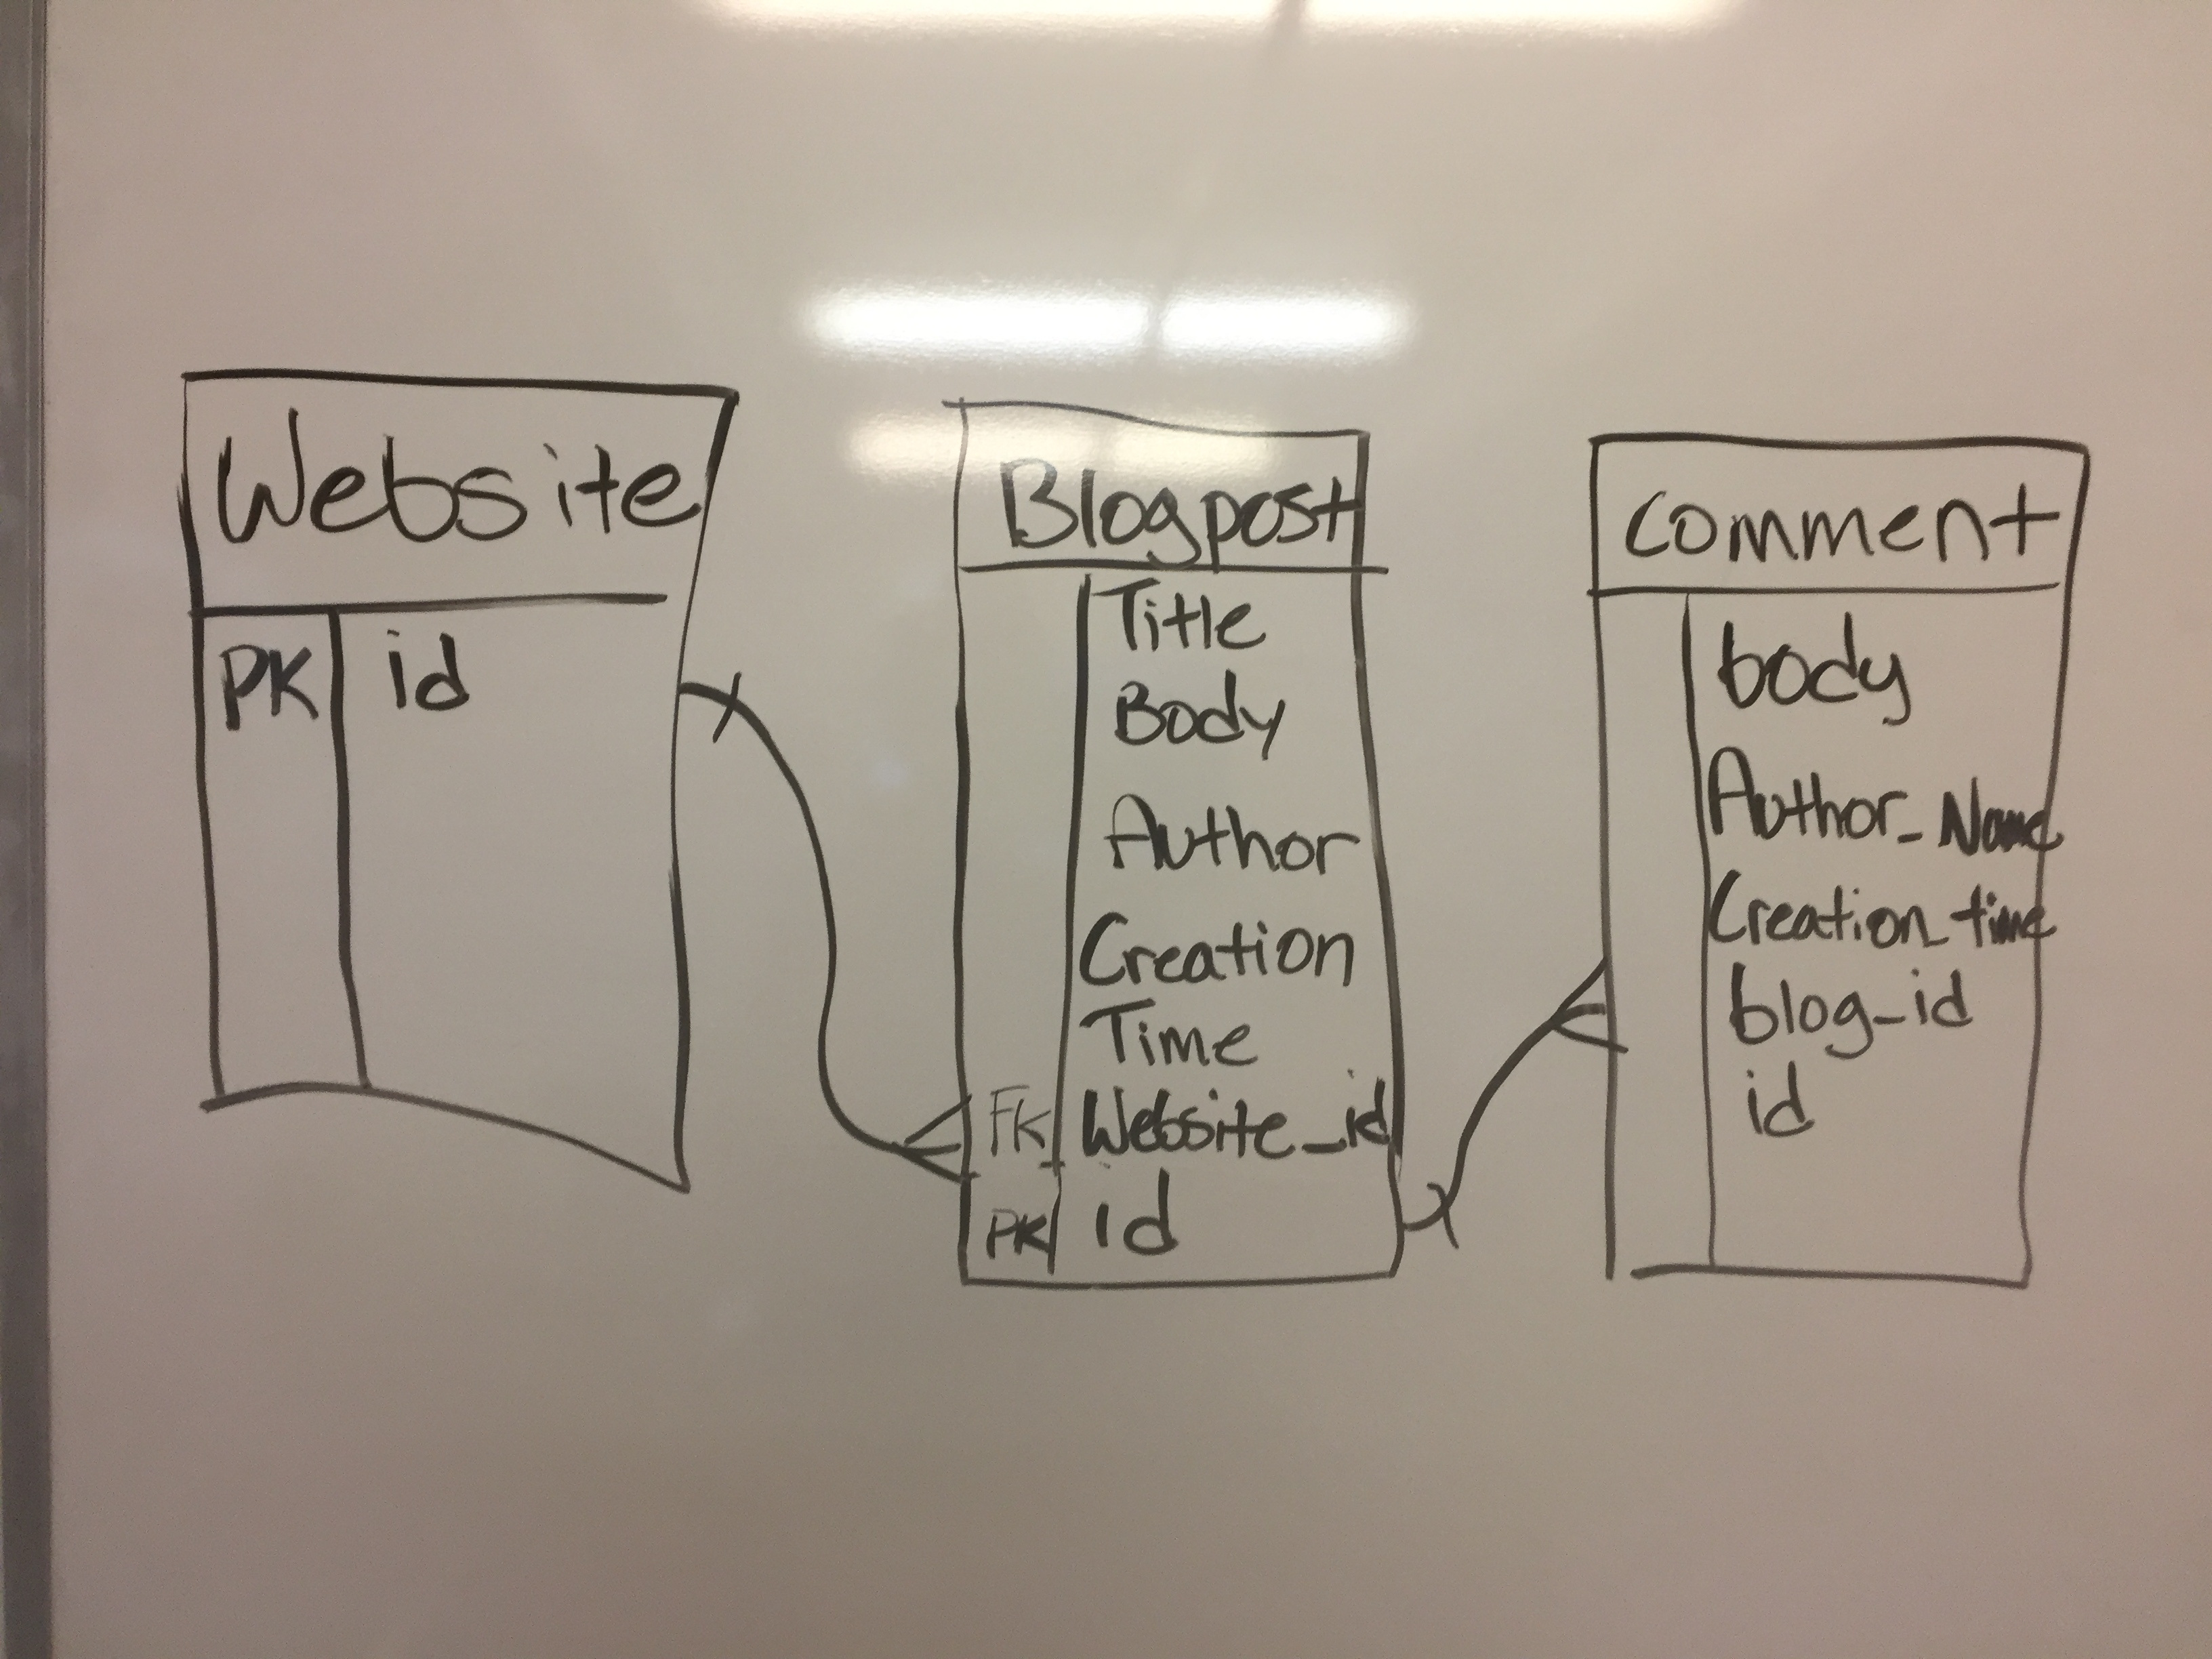 Website
PK id
Blogpost
Title
Body
Author
Creation
Time
FK Website_id
PK id
comment
body
Author_Name
Creation_time
blog_id
id